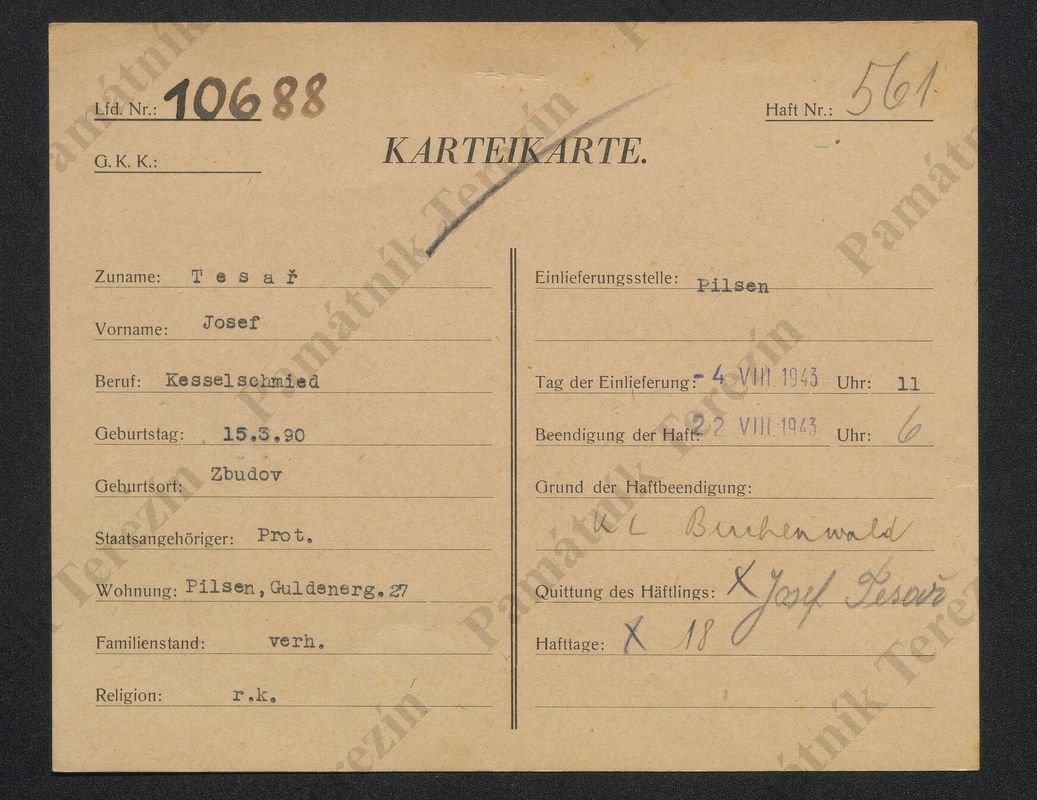 Lfd. Nr.: 10688
Haft Nr.: 561.
G. K. K.:
KARTEIKARTE.
Zuname: Tesař
Vorname: Josef
Beruf: Kesselschmied
Geburtstag: 15.3.90
Geburtsort: Zbudov
Staatsangehöriger: Prot.
Wohnung: Pilsen, Guldenerg. 27
Familienstand: verh.
Religion: r.k.
Einlieferungsstelle: Pilsen
Tag der Einlieferung: - 4 VIII. 1943 Uhr: 11
Beendigung der Haft: 22 VIII. 1943 Uhr: 6
Grund der Haftbeendigung:
KL Buchenwald
Quittung des Häftlings: X Josef Tesař
Hafttage: X 18
Památník Terezín
Památník Terezín
Památník Terezín
Památník Terezín